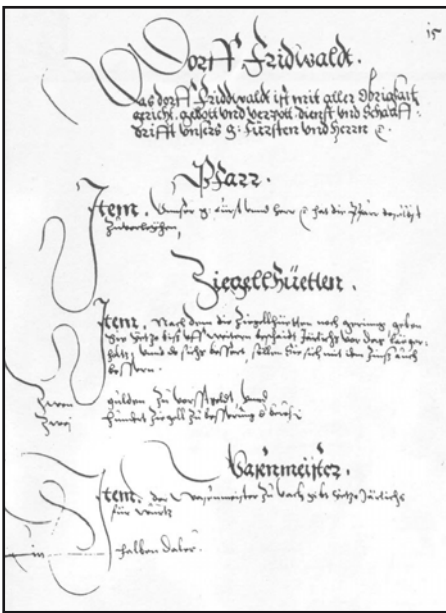 15
Dorff Fridwaldt.
Das dorff Friddwaldt ist mit aller Obrigkait
gericht, gebott vnd verpott dienst vnd Schaff
trifft vnsers g: Fürsten vnd herrn ꝛc.
Pfarr.
Item. Vnser g: Fürst vnnd herr ꝛc hat die Pfarr
Zuuerleyhen,
Ziegellhüetten.
Item. Nach dem die Ziegellhüetten noch gering, geben
Sie bitz vff weitern beschaidt Järlichs vor das
vnnd sich bessert, sollen Sie sich mit dem Zinß auch
bessern.
Zwen gülden Zu vorstgeldt, vnnd
Zwej hundert Ziegell Zu besserung
Vasenmeister.
Item. der Wasenmeister Zu vach gibt Järlichs
für
Ein halben Daler.